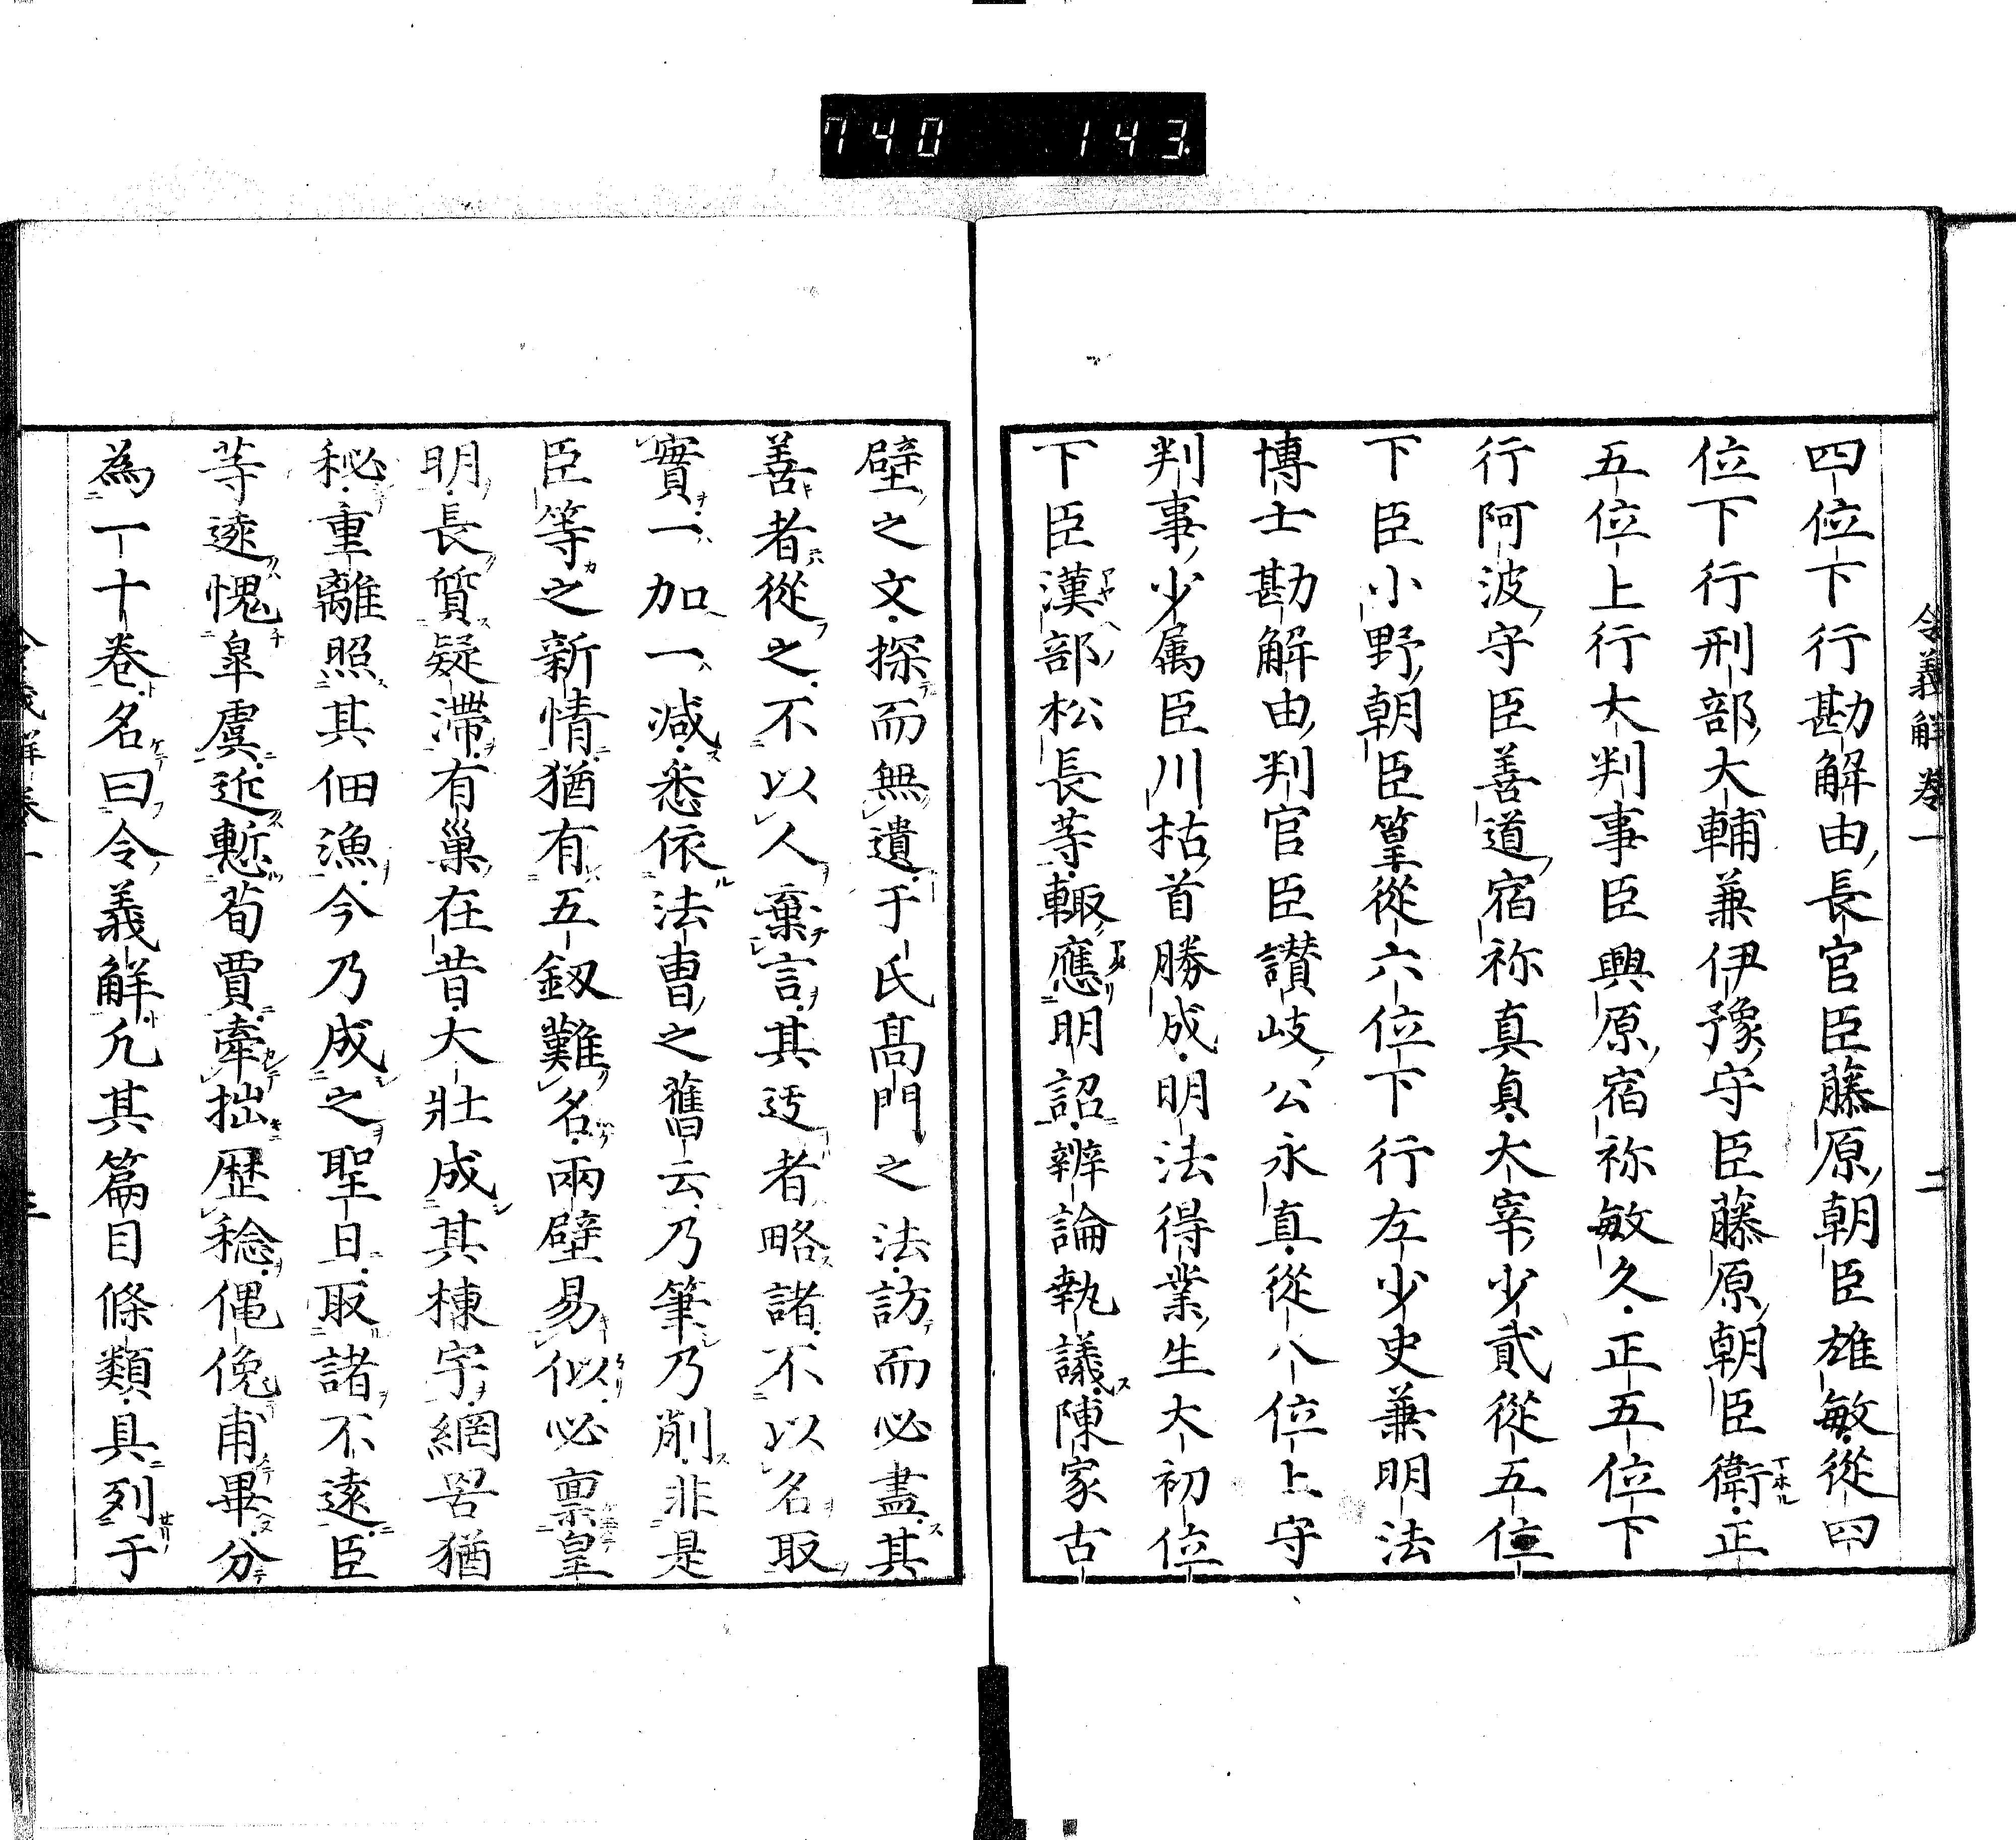 740 143
令義解卷一 二
四位下行勘解由長官臣藤原朝臣雄敏從四
位下行刑部大輔兼伊豫守臣藤原朝臣衛正
五位上行大判事臣興原宿祢敏久正五位下
行阿波守臣善道宿祢真貞大宰少貳從五位
下臣小野朝臣篁從六位下行左少史兼明法
博士勘解由判官臣讃岐公永真從八位上守
判事少属臣川枯首勝成明法得業生大初位
下臣漢部松長等輙應明詔辨論執議陳家古
壁之文探而無遺于氏髙門之法訪而必盡其
善者從之不以人棄言其迃者略諸不以名取
實一加一减悉依法曺之舊云乃筆乃削非是
臣等之新情猶有五釼難名兩壁易似必禀皇
明長質疑滯有巢在昔大壯成其棟宇網罟猶
秘重離照其佃漁今乃成之聖日取諸不遠臣
等遠愧皐虞近慙荀賈牽拙歴稔僶俛甫畢分
為一十卷名曰令義解凢其篇目條類具列于